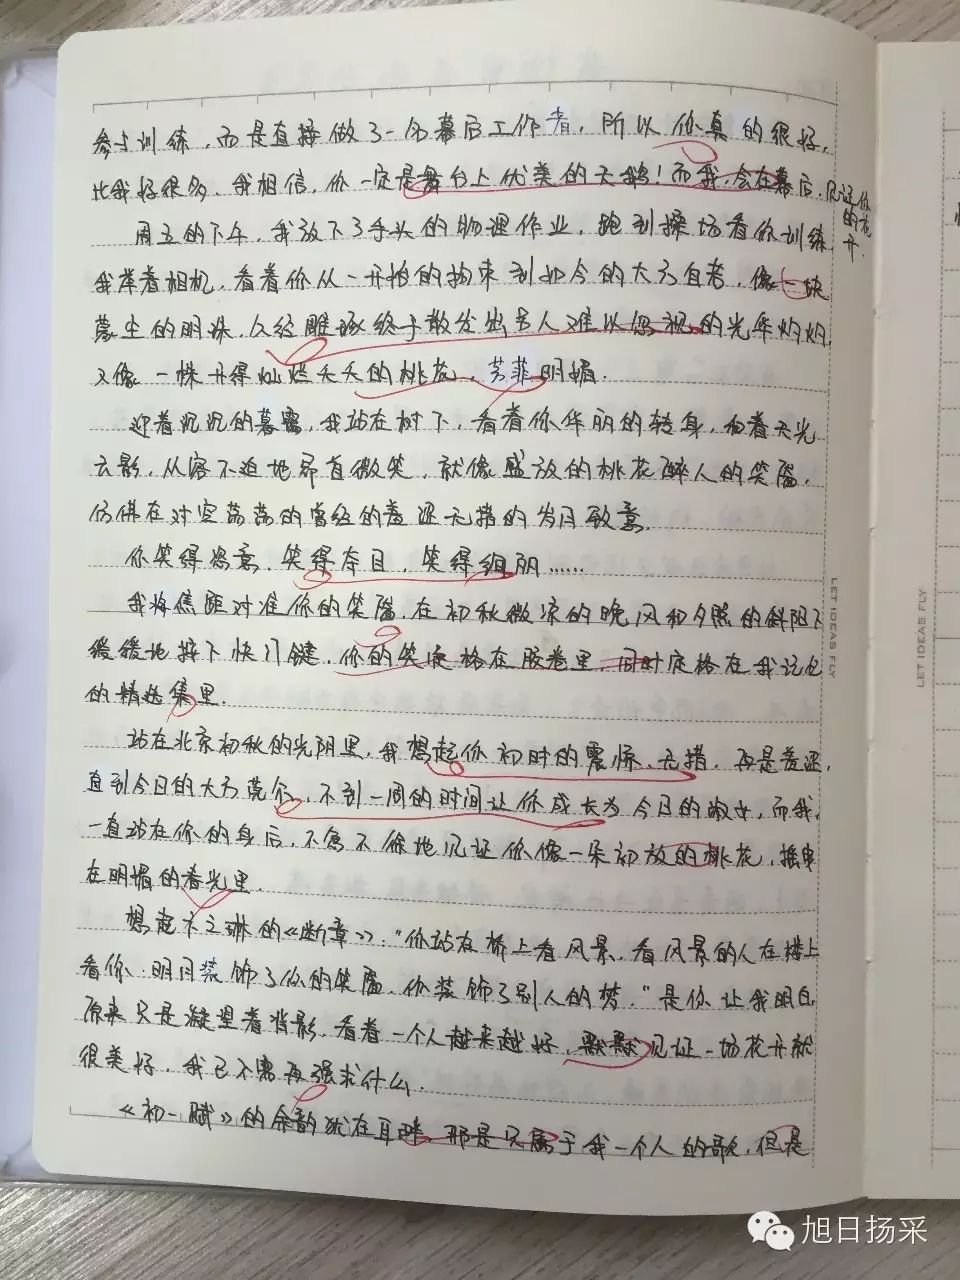 参与训练，而是直接做了一名幕后工作者，所以你真的很好，
比我好很多。我相信，你一定是舞台上优美的天鹅！而我，会在幕后，见证你
的花
开.
周五的下午，我放下了手头的物理作业，跑到操场看你训练
我举着相机，看着你从一开始的拘束到如今的大方自若，像一块
蒙尘的明珠，久经雕琢终于散发出令人难以忽视的光华灼灼，
又像一株开得灿烂夭夭的桃花，芳菲明媚.
迎着沉沉的暮霭，我站在树下，看着你华丽的转身，和着天光
云影，从容不迫地昂首微笑，就像盛放的桃花醉人的笑靥，
仿佛在对空荡荡的曾经的羞涩无措的岁月致意.
你笑得恣意，笑得夺目，笑得绚丽……
我将焦距对准你的笑靥，在初秋微凉的晚风和夕照的斜阳下
缓缓地按下快门键，你的笑定格在胶卷里，同时定格在我记忆
的精选集里.
站在北京初秋的光阴里，我想起你初时的震惊、无措，再是羞涩，
直到今日的大方莞尔，不到一周的时间让你成长为今日的淑女，而我，
一直站在你的身后，不急不徐地见证你像一朵初放的桃花，摇曳
在明媚的春光里.
想起卞之琳的《断章》："你站在桥上看风景，看风景的人在楼上
看你.明月装饰了你的笑靥，你装饰了别人的梦."是你让我明白
原来只是凝望着背影，看着一个人越来越好，默默见证一场花开就
很美好，我已不需再强求什么.
《初一赋》的余韵犹在耳畔，那是只属于我一个人的歌，但是
LET IDEAS FLY
LET IDEAS FLY
旭日扬采